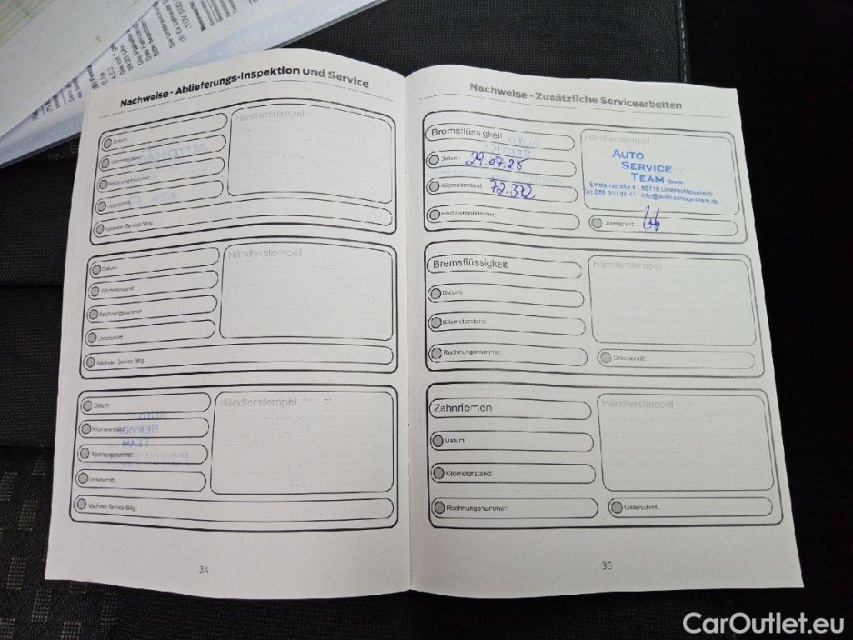 Nachweise - Ablieferungs-Inspektion und Service
Datum:
Kilometerstand:
Rechnungsnummer:
Unterschrift:
Nächster Service fällig:
Händlerstempel
Datum:
Kilometerstand:
Rechnungsnummer:
Unterschrift:
Nächster Service fällig:
Händlerstempel
Datum:
Kilometerstand:
Rechnungsnummer:
Unterschrift:
Nächster Service fällig:
Händlerstempel
34
Nachweise - Zusätzliche Servicearbeiten
Bremsflüssigkeit
Datum:
Kilometerstand: 72.372
Rechnungsnummer:
Händlerstempel
AUTO
SERVICE
TEAM GmbH
Unterschrift:
Bremsflüssigkeit
Datum:
Kilometerstand:
Rechnungsnummer:
Händlerstempel
Unterschrift:
Zahnriemen
Datum:
Kilometerstand:
Rechnungsnummer:
Händlerstempel
Unterschrift:
CarOutlet.eu